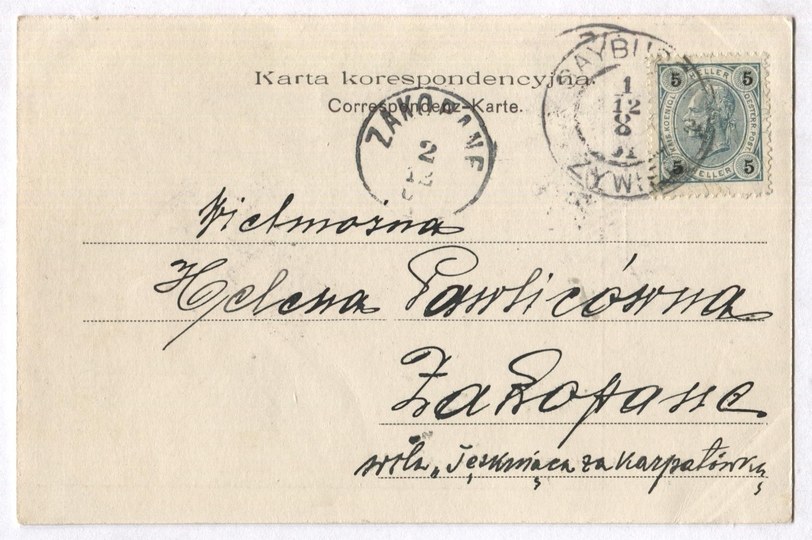 Karta korespondencyjna
Correspondenz-Karte.
SAYBUSCH
ŻYWIEC
1
12
8
ZAKOPANE
2
5 HELLER 5
KAIS. KOENIGL. OESTERR. POST
5 HELLER 5
Wielmożna
Helena Pawlicówna
Zakopane
willa „Tęskniąca za Karpatówką